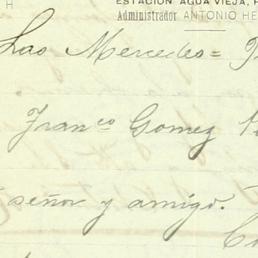 H
ESTACIÓN AGUA VIEJA,
Administrador ANTONIO HE
Las Mercedes =
Fran^co Gomez
señor y amigo.